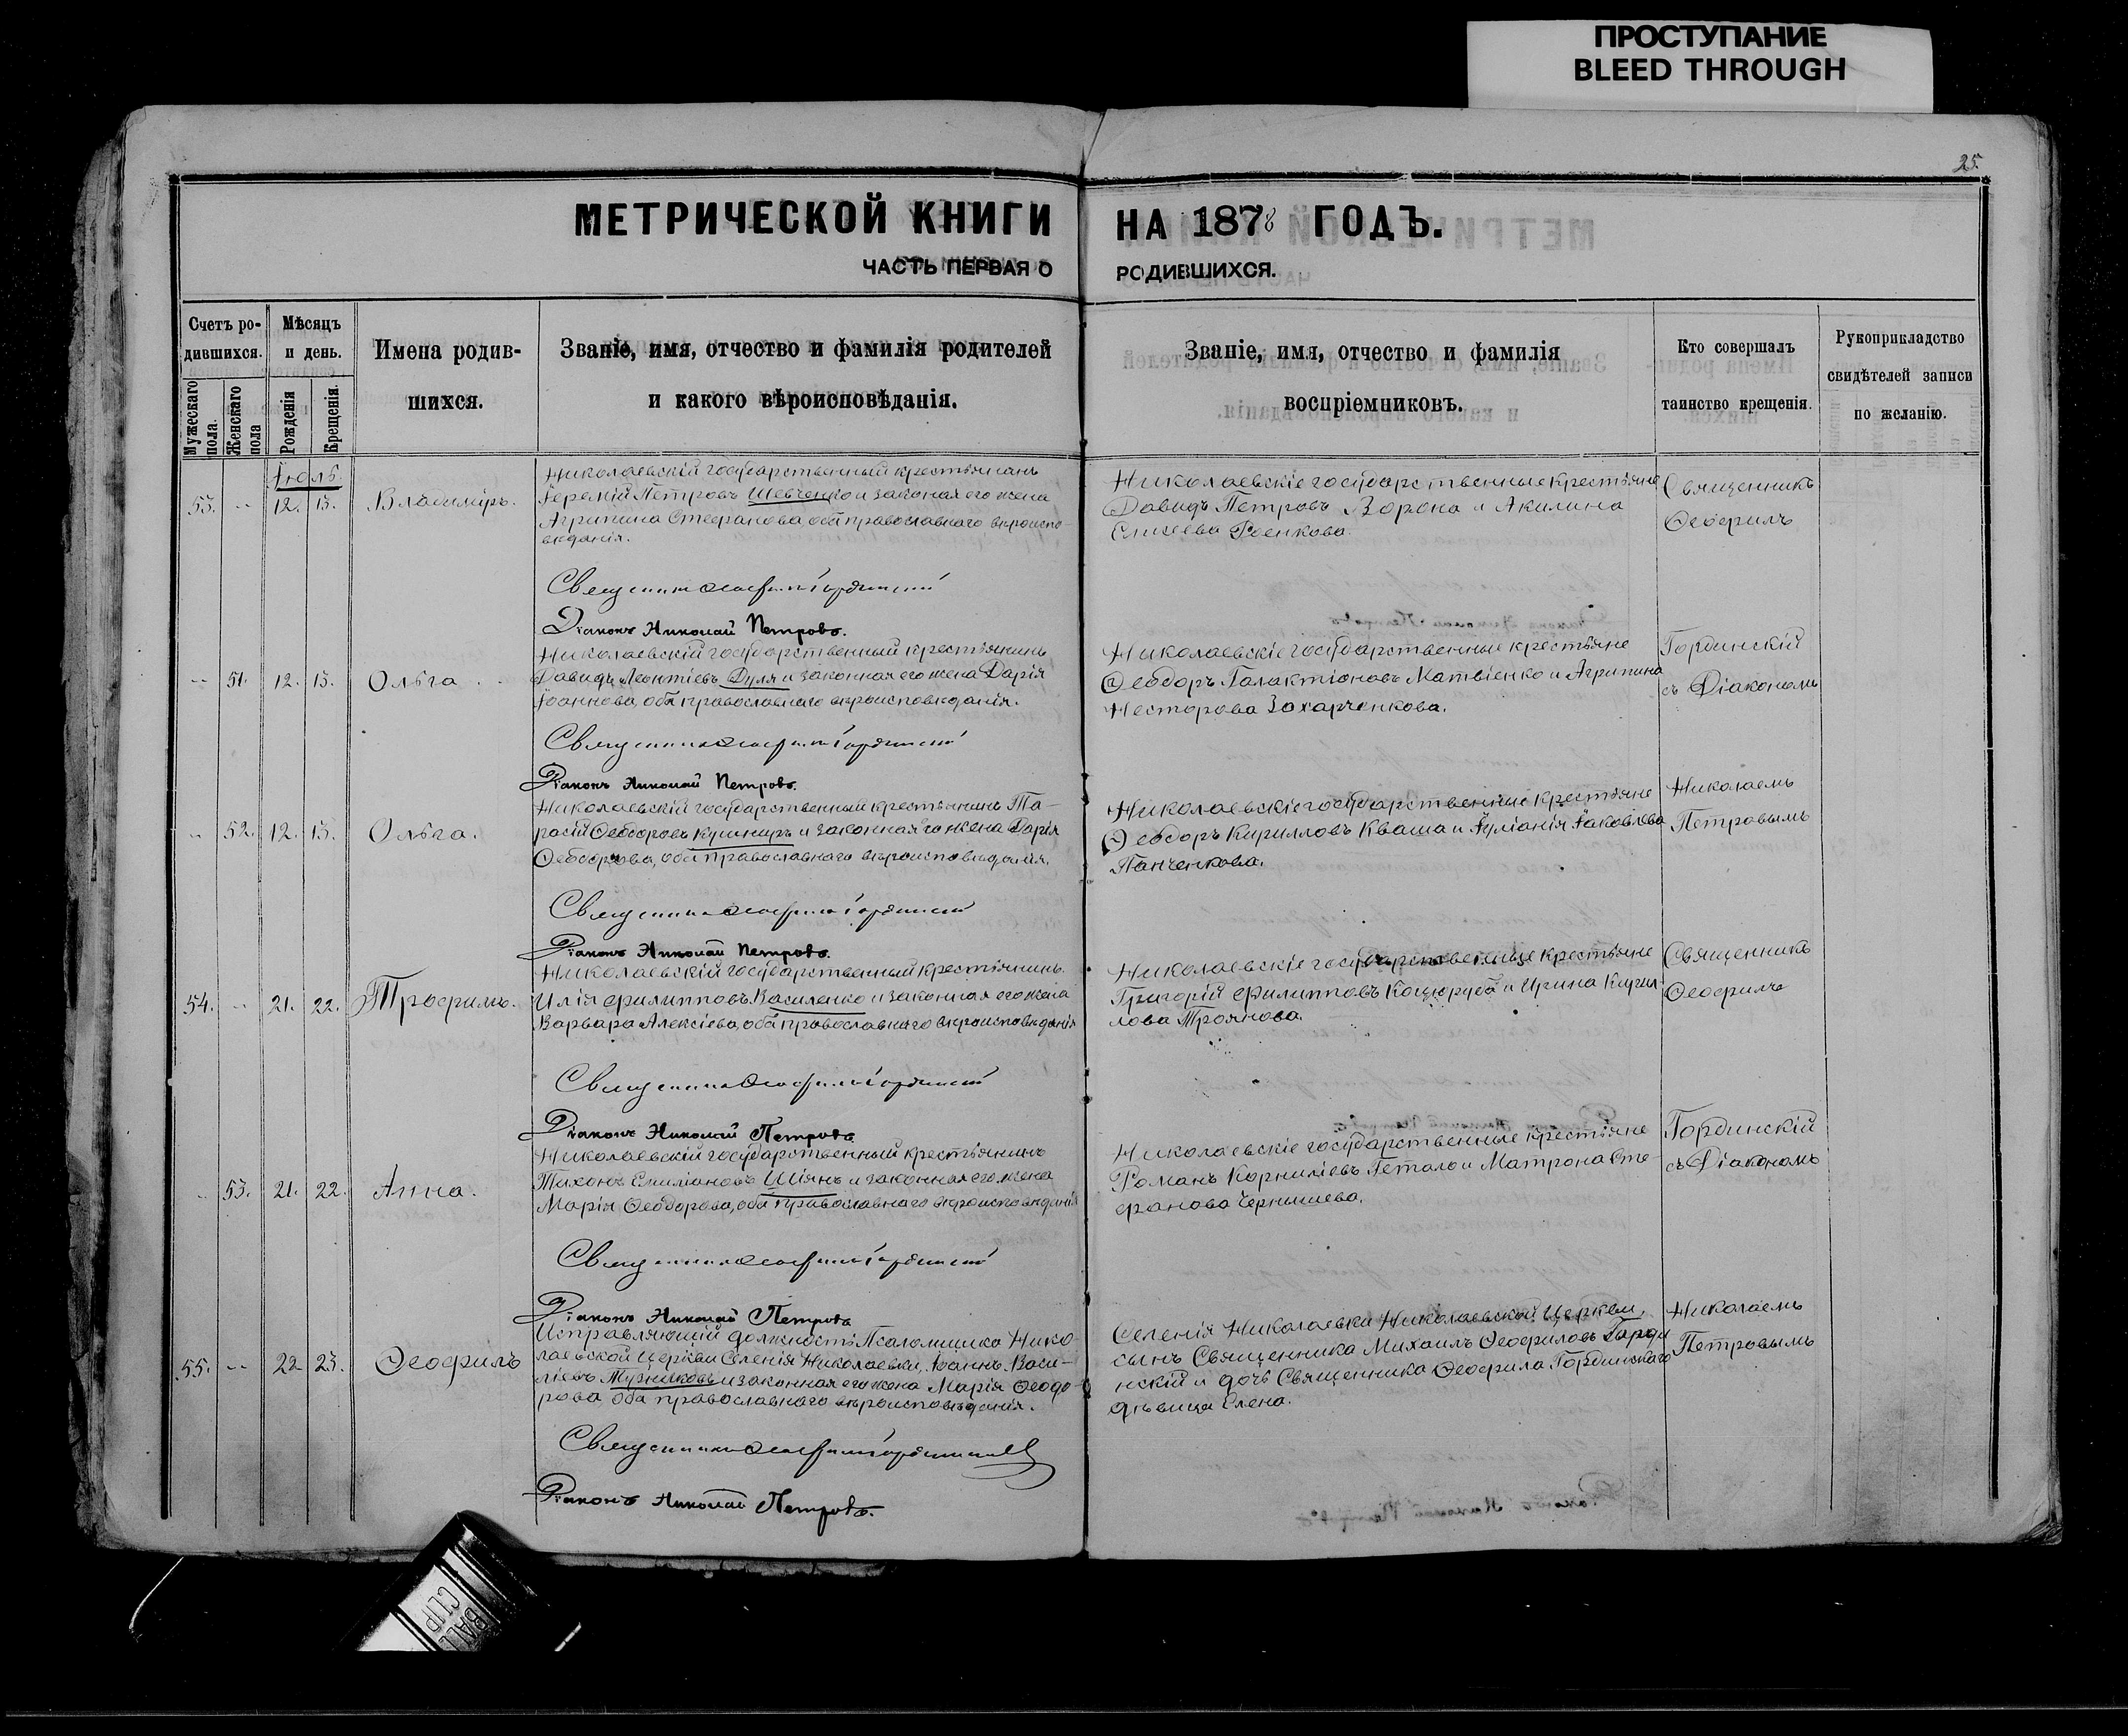 ПРОСТУПАНИЕ
BLEED THROUGH
25.
МЕТРИЧЕСКОЙ КНИГИ НА 1878 ГОДЪ.
ЧАСТЬ ПЕРВАЯ О РОДИВШИХСЯ.
Счетъ ро-
дившихся.
Мужескаго пола.
Женскаго пола
Мѣсяцъ
и день.
Рожденія
Крещенія.
Имена родив-
шихся.
Званіе, имя, отчество и фамилія родителей
и какого вѣроисповѣданія.
Званіе, имя, отчество и фамилія
воспріемниковъ.
Кто совершалъ
таинство крещенія.
Рукоприкладство
свидѣтелей записи
по желанію.
Іюль.
53. -- 12. 13. Владиміръ.
Николаевскій государственный крестьянинъ
Іеремій Петровъ Шевченко и законая его жена
Агрипина Стефанова, оба православнаго вѣроиспо-
вѣданія.
Николаевскіе государственные крестьяне
Давидъ Петровъ Ворона и Акилина
Елисеева Роенкова.
Священникъ
Ѳеофилъ
Священникъ Ѳеофилъ Гординскій
Діаконъ Николай Петровъ.
-- 51. 12. 13. Ольга.
Николаевскій государственный крестьянинъ
Давидъ Леонтіевъ Дуля и законная его жена Дарія
Іоаннова, оба православнаго вѣроисповѣданія.
Николаевскіе государственные крестьяне
Ѳеодоръ Галактіоновъ Матвіенко и Агрипина
Несторова Захарченкова.
Гординскій
съ Діакономъ
Священникъ Ѳеофилъ Гординскій
Діаконъ Николай Петровъ.
-- 52. 12. 13. Ольга.
Николаевскій государственный крестьянинъ Та-
расій Ѳеодоровъ Кушниръ и законная его жена Дарія
Ѳеодорова, оба православнаго вѣроисповѣданія.
Николаевскіе государственные крестьяне
Ѳеодоръ Кирилловъ Кваша и Іуліанія Іаковлева
Панченкова.
Николаемъ
Петровымъ
Священникъ Ѳеофилъ Гординскій
Діаконъ Николай Петровъ.
54. -- 21. 22. Трофимъ.
Николаевскій государственный крестьянинъ
Илія Филипповъ Василенко и законная его жена
Варвара Алексіева, оба православнаго вѣроисповѣданія
Николаевскіе государственные крестьяне
Григорій Филипповъ Коцюруба и Ирина Кирил-
лова Троянова.
Священникъ
Ѳеофилъ
Священникъ Ѳеофилъ Гординскій
Діаконъ Николай Петровъ
-- 53. 21. 22. Анна.
Николаевскій государственный крестьянинъ
Тихонъ Емиліановъ Шіянъ и законная его жена
Марія Ѳеодорова, оба православнаго вѣроисповѣданія
Николаевскіе государственные крестьяне
Романъ Корниліевъ Гетало и Матрона Сте-
фанова Чернышева.
Гординскій
съ Діакономъ
Священникъ Ѳеофилъ Гординскій
Діаконъ Николай Петровъ
55. -- 22. 23. Ѳеофилъ
Исправляющій должность Псаломщика Нико-
лаевской Церкви Селенія Николаевки, Іоаннъ Васи-
ліевъ и законная его жена Марія Ѳеодо-
рова оба православнаго вѣроисповѣданія.
Селенія Николаевки Николаевской Церкви,
сынъ Священника Михаилъ Ѳеофиловъ Горди
нскій и дочь Священника Ѳеофила Гординскаго
дѣвица Елена.
Николаемъ
Петровымъ
Священникъ Ѳеофилъ Гординскій
Діаконъ Николай Петровъ.
BALL
CLIP